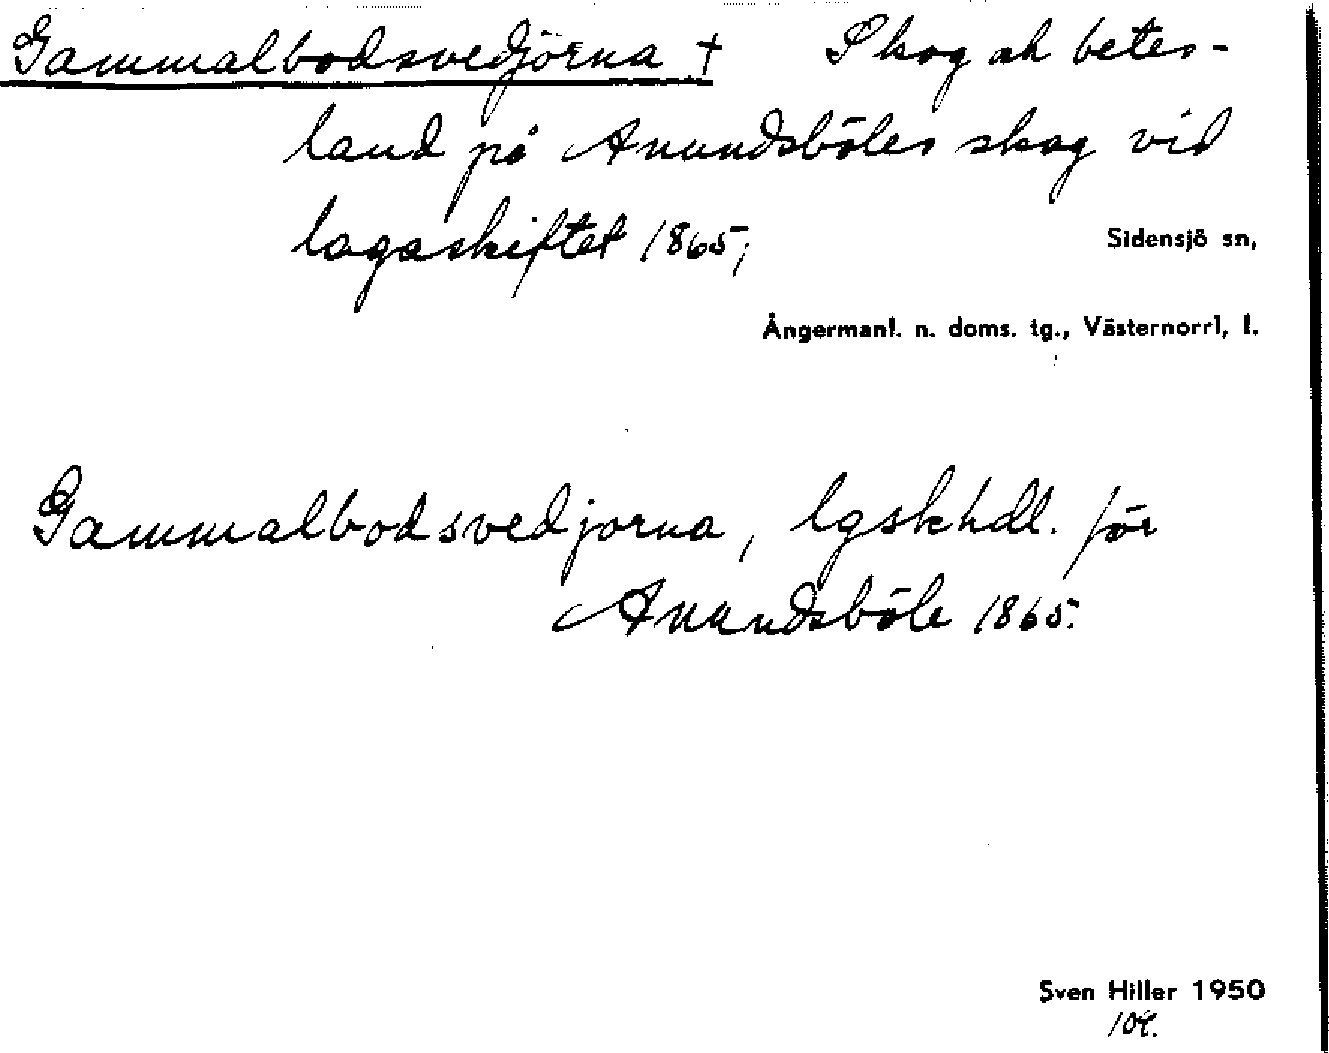 Gammalbodsvedjörna † Skog ok betes-
land på Anundsböles skog vid
lagaskiftet 1865;
Sidensjö sn,
Ångermanl. n. doms. tg., Västernorrl, l.
Gammalbodsvedjorna, lgskhdl. för
Anundsböle 1865.
Sven Hiller 1950